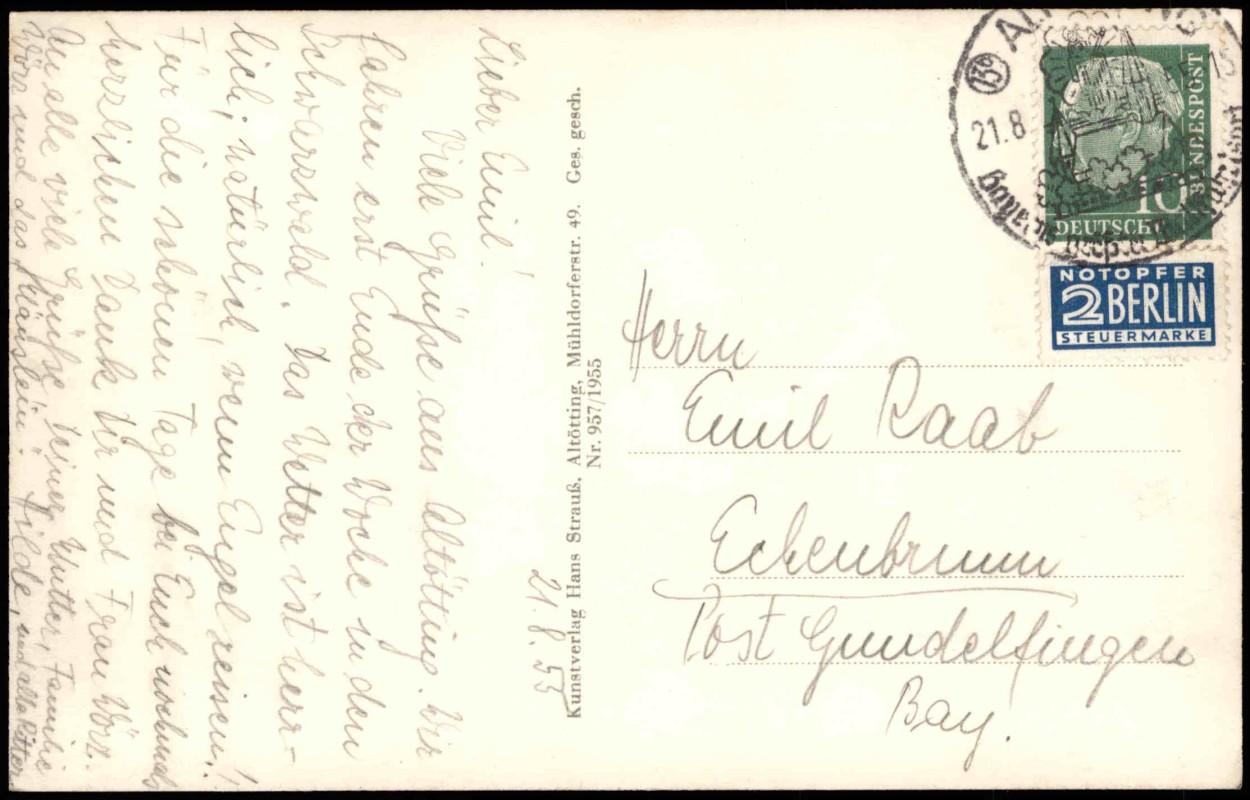 Lieber Emil!
Viele Grüße aus Altötting. Wir
fahren erst Ende der Woche in den
Schwarzwald. Das Wetter ist herr-
lich, natürlich, wenn Engel reisen!!
Für die schönen Tage bei Euch nochmals
herzlichen Dank Dir und Frau Wörz.
An alle viele Grüße Deiner Mutter, Familie
Wörz und das "Kläuslein". Hilde, und alle Ritter
21.8.55
Kunstverlag Hans Strauß, Altötting, Mühldorferstr. 49. Ges. gesch.
Nr. 957/1955
13b
21.8
10
BUNDESPOST
DEUTSCHE
NOTOPFER
2 BERLIN
STEUERMARKE
Herrn
Emil Raab
Eckenbrunn
Post Gundelfingen
Bay.